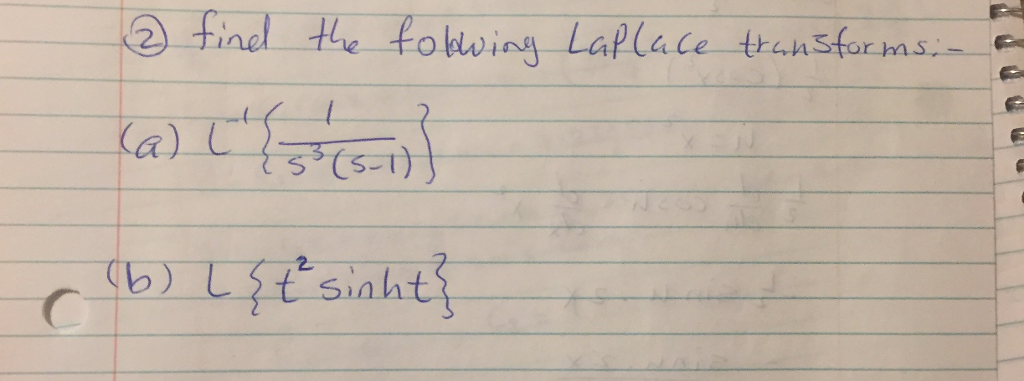 ② find the following Laplace transforms:-
(a) L⁻¹{1/(s³(s-1))}
(b) L{t² sinht}